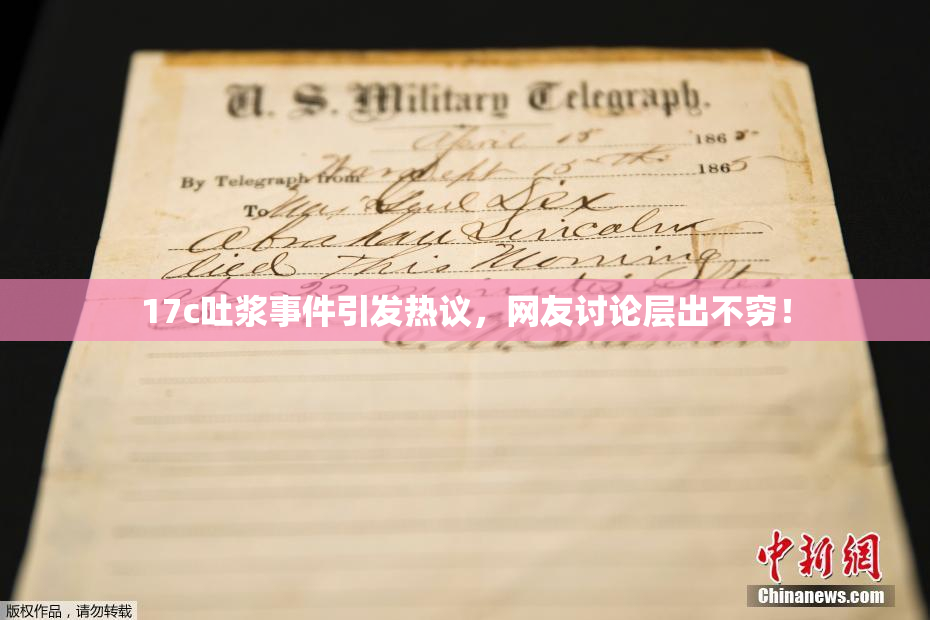 U. S. Military Telegraph.
April 15 1865
By Telegraph from War Dept 15th 1865
To Maj Genl Dix
Abraham Lincoln
died This Morning
at 22 minutes after
17c吐浆事件引发热议，网友讨论层出不穷！
E. M. Stanton
中新网
Chinanews.com
版权作品，请勿转载